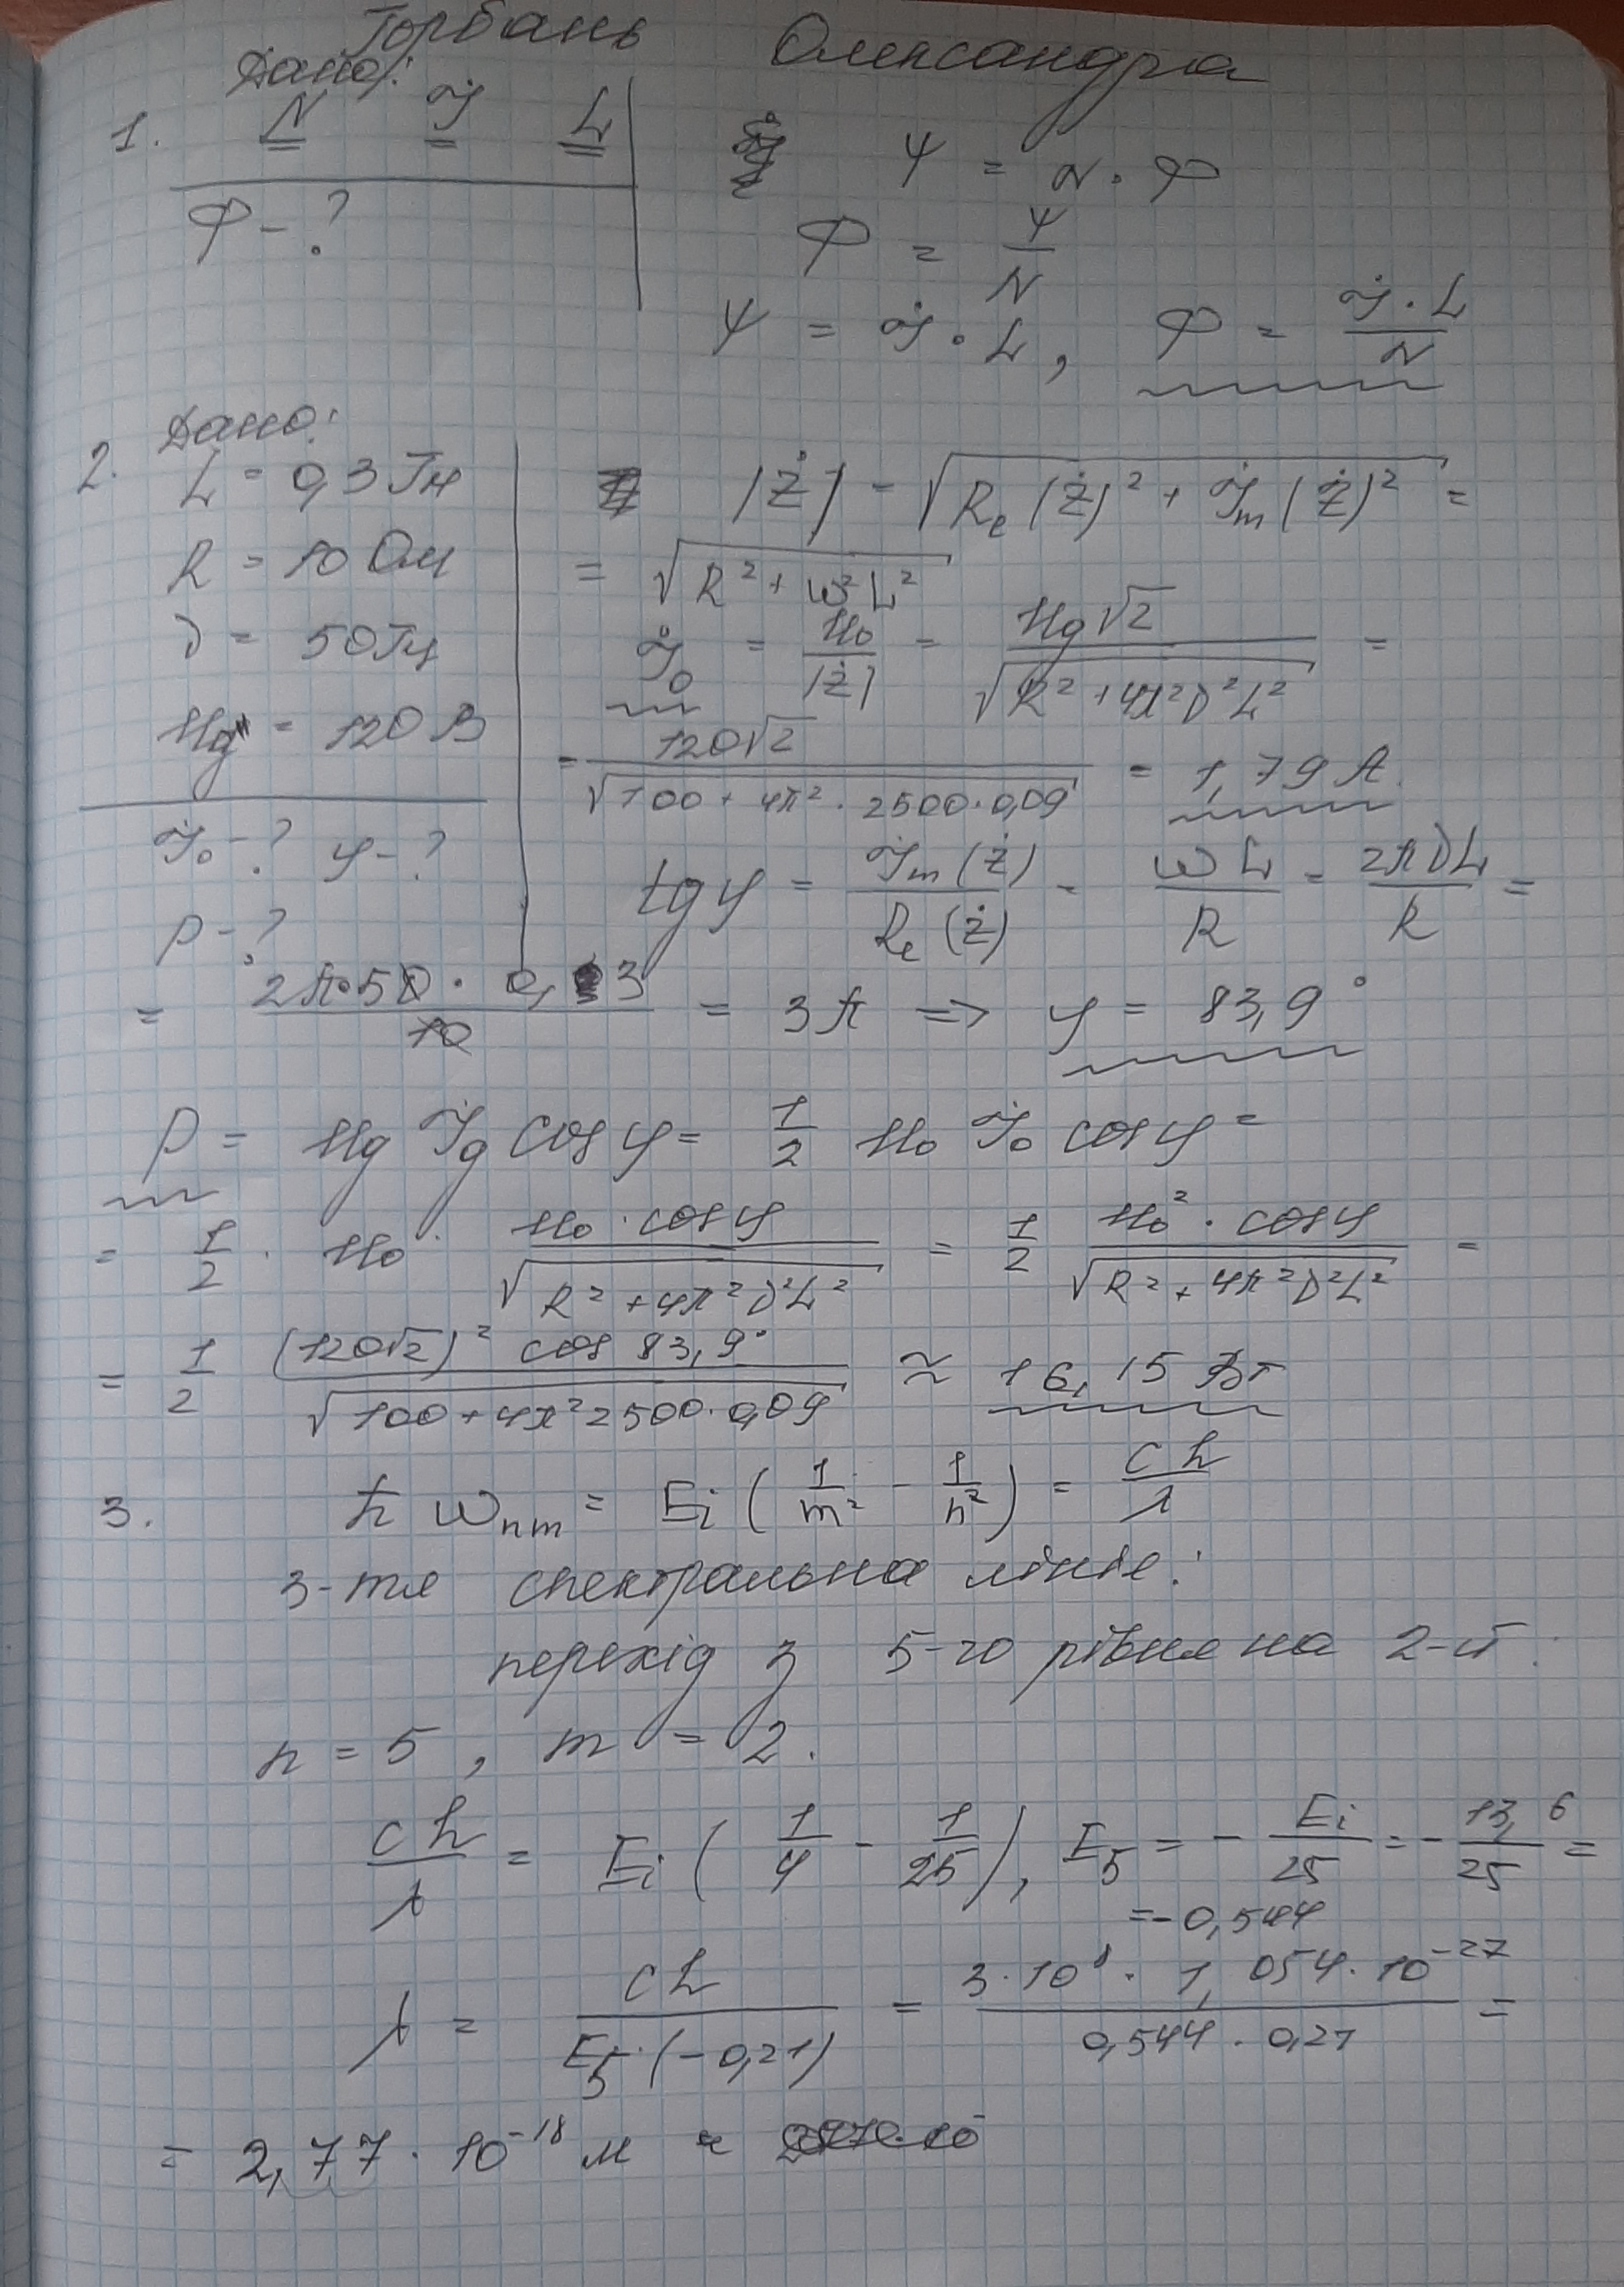 Горбань Олександра
Дано:
1. N J L
Ф - ?
Ψ = N · Ф
Ф = Ψ/N
Ψ = J · L, Ф = J · L/N
2. Дано:
L = 0,3 Гн
R = 10 Ом
ν = 50 Гц
Ug = 120 В
J₀ - ? φ - ?
P - ?
|Ż| = √(Re(Ż)² + Jm(Ż)²) =
= √(R² + ω²L²)
J₀ = U₀/|Ż| = Ug√2/√(R² + 4π²ν²L²) =
= 120√2/√(100 + 4π² · 2500 · 0,09) = 1,79 A.
tg φ = Jm(Ż)/Re(Ż) = ωL/R = 2πνL/R =
= 2π·50 · 0,3/10 = 3π => φ = 83,9°
P = Ug Jg cos φ = 1/2 U₀ J₀ cos φ =
= 1/2 · U₀ · U₀ · cos φ/√(R² + 4π²ν²L²) = 1/2 U₀² · cos φ/√(R² + 4π²ν²L²) =
= 1/2 (120√2)² cos 83,9°/√(100 + 4π² 2500 · 0,09) ≈ 16,15 Вт
3. ħ ωnm = Ei (1/m² - 1/n²) = ch/λ
3-тя спектральна лінія:
перехід з 5-го рівня на 2-й:
n = 5, m = 2.
ch/λ = Ei (1/4 - 1/25), E₅ = - Ei/25 = - 13,6/25 =
= -0,544
λ = ch/E₅·(-0,21) = 3·10⁸ · 1,054·10⁻²⁷/0,544 · 0,21 =
= 2,77 · 10⁻¹⁸ м